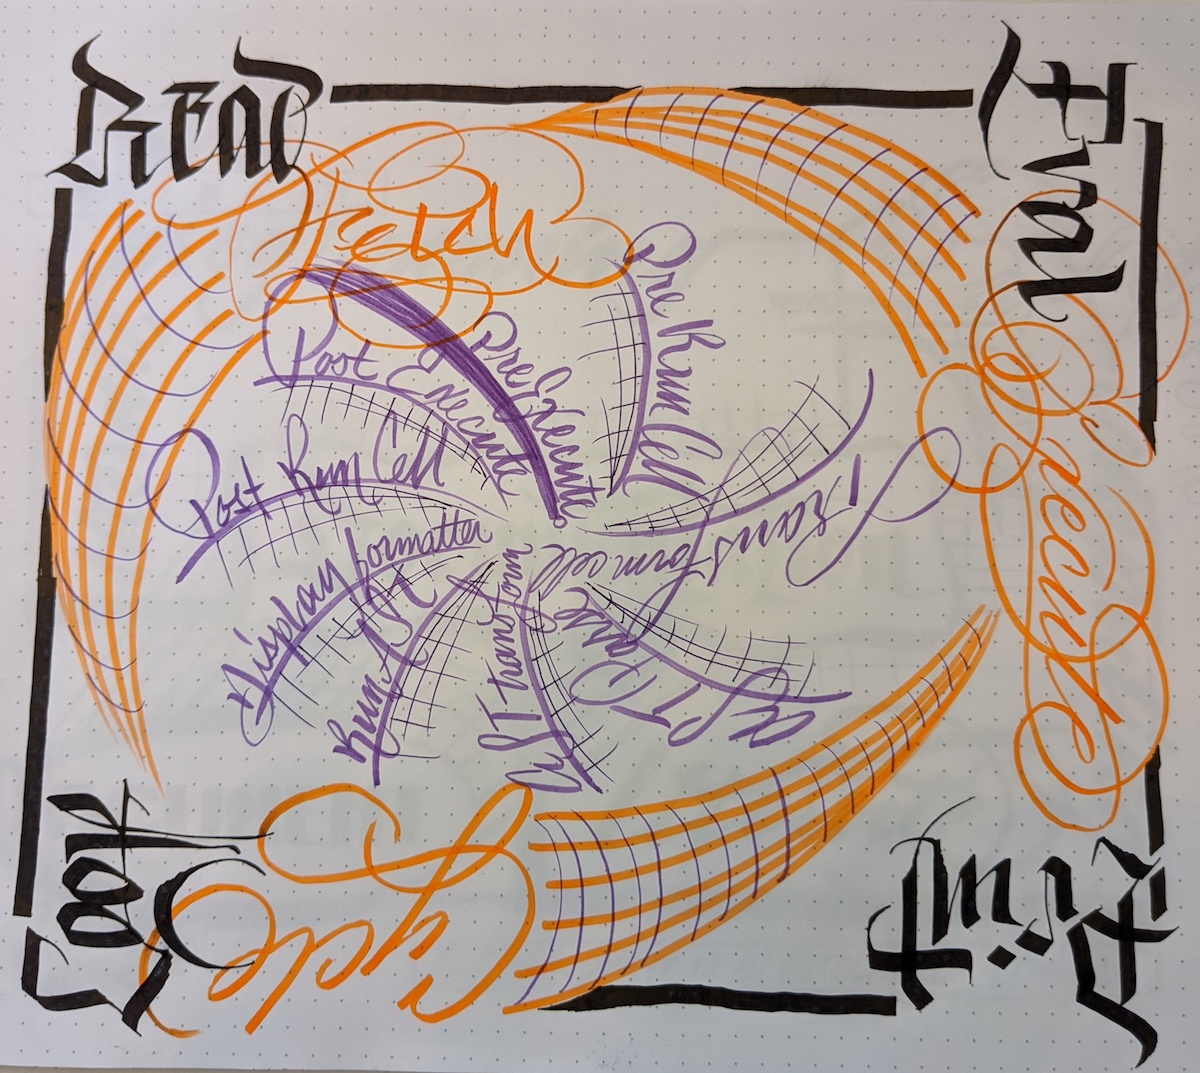 Read
Eval
Print
Loop
Fetch
Execute
Cycle
Pre Execute
Pre Run Cell
Transform cell
Run AST
Display formatter
Post Run Cell
Post Execute